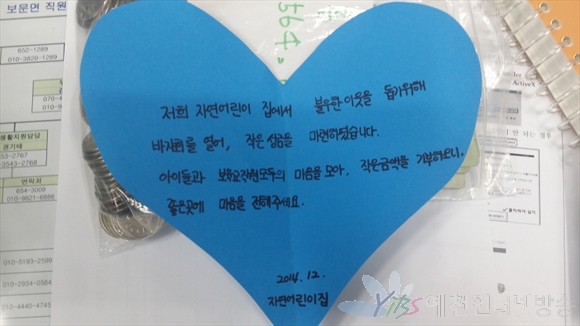 보문면 직원
652-1289
010-3820-1289
생활지원담당
권기태
53-2767
3543-2768
연락처
654-3009
010-9821-6886
010-5193-2599
010-2934-0564
010-4440-4745
564.
저희 자연어린이 집에서 불우한 이웃을 돕기위해
바자회를 열어, 작은 성금을 마련하였습니다.
아이들과 보육교직원모두의 마음을 모아, 작은금액을 기부하오니,
좋은곳에 마음을 전해주세요.
2014. 12.
자연어린이집
ActiveX
이 안 되는 경우
YIBS 예천인터넷방송